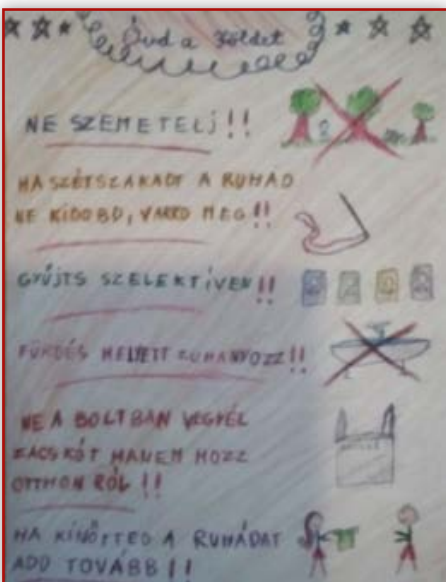 Óvd a Földet
NE SZEMETELJ!!
HA SZÉTSZAKADT A RUHÁD
NE KIDOBD, VARRD MEG!!
GYŰJTS SZELEKTÍVEN!!
FÜRDÉS HELYETT ZUHANYOZZ!!
NE A BOLTBAN VEGYÉL
ZACSKÓT HANEM HOZZ
OTTHON RÓL!!
HA KINŐTTED A RUHÁDAT
ADD TOVÁBB!!